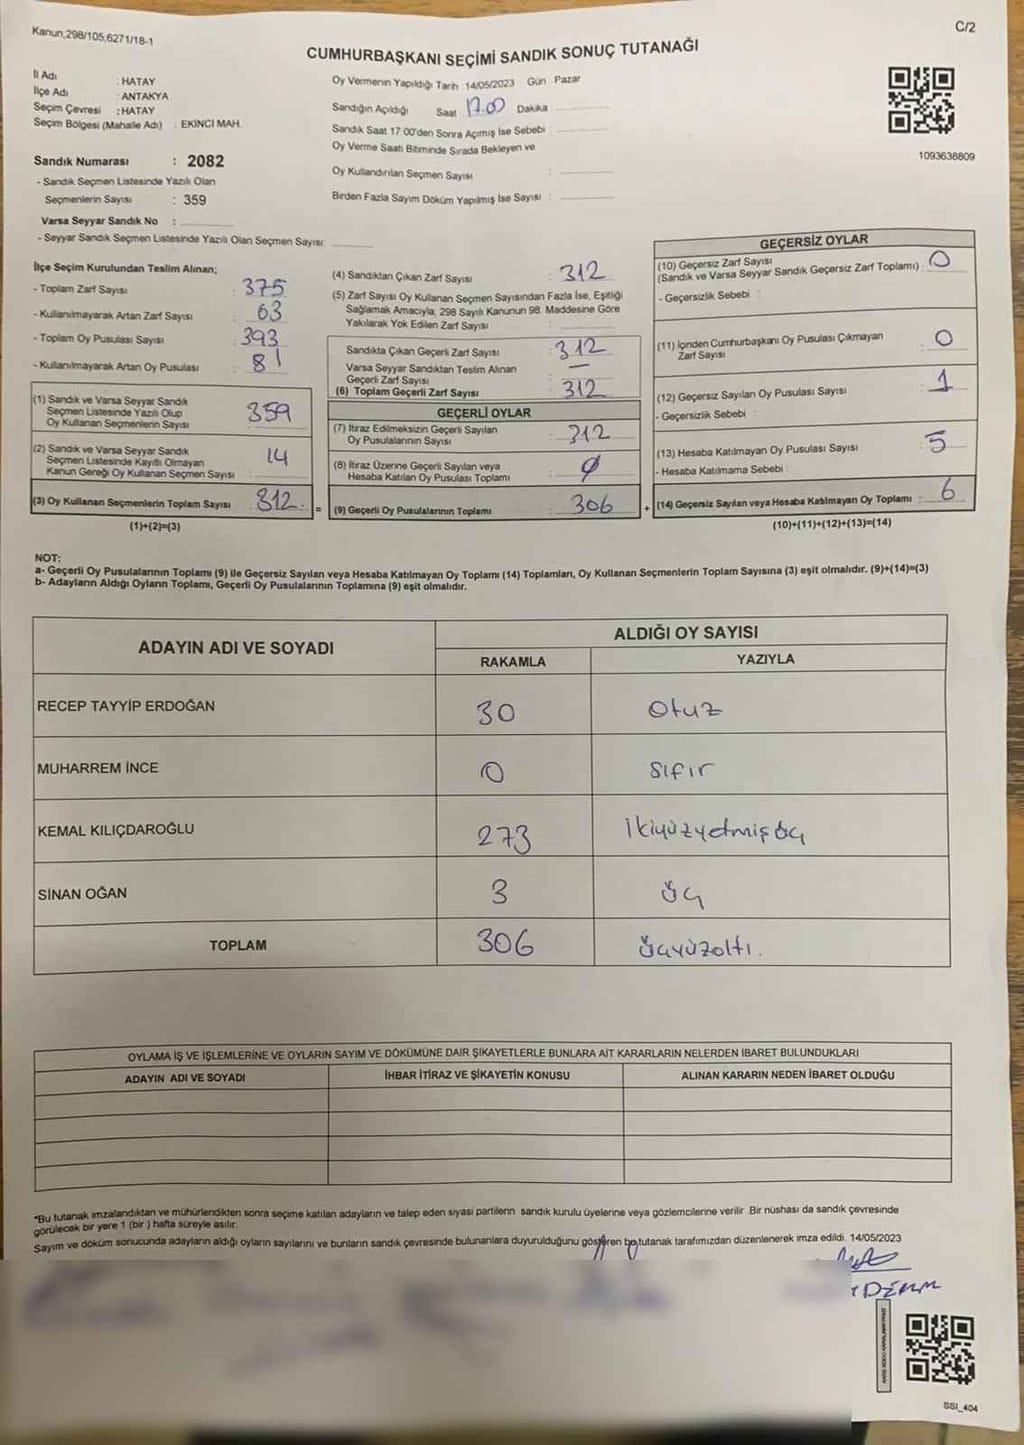 Kanun,298/105,6271/18-1
C/2
CUMHURBAŞKANI SEÇİMİ SANDIK SONUÇ TUTANAĞI
İl Adı : HATAY
İlçe Adı : ANTAKYA
Seçim Çevresi : HATAY
Seçim Bölgesi (Mahalle Adı) : EKİNCİ MAH.
Sandık Numarası : 2082
- Sandık Seçmen Listesinde Yazılı Olan
Seçmenlerin Sayısı : 359
Varsa Seyyar Sandık No :
- Seyyar Sandık Seçmen Listesinde Yazılı Olan Seçmen Sayısı:
Oy Vermenin Yapıldığı Tarih 14/05/2023 Gün : Pazar
Sandığın Açıldığı Saat 17.00 Dakika
Sandık Saat 17 00'den Sonra Açımış İse Sebebi :
Oy Verme Saati Bitiminde Sırada Bekleyen ve
Oy Kullandırılan Seçmen Sayısı :
Birden Fazla Sayım Döküm Yapılmış İse Sayısı :
1093638809
İlçe Seçim Kurulundan Teslim Alınan;
- Toplam Zarf Sayısı : 375
- Kullanılmayarak Artan Zarf Sayısı : 63
- Toplam Oy Pusulası Sayısı : 393
- Kullanılmayarak Artan Oy Pusulası : 81
(1) Sandık ve Varsa Seyyar Sandık
Seçmen Listesinde Yazılı Olup
Oy Kullanan Seçmenlerin Sayısı : 359
(2) Sandık ve Varsa Seyyar Sandık
Seçmen Listesinde Kayıtlı Olmayan
Kanun Gereği Oy Kullanan Seçmen Sayısı : 14
(3) Oy Kullanan Seçmenlerin Toplam Sayısı : 312.
(1)+(2)=(3)
(4) Sandıktan Çıkan Zarf Sayısı : 312
(5) Zarf Sayısı Oy Kullanan Seçmen Sayısından Fazla İse, Eşitliği
Sağlamak Amacıyla, 298 Sayılı Kanunun 98. Maddesine Göre
Yakılarak Yok Edilen Zarf Sayısı :
Sandıkta Çıkan Geçerli Zarf Sayısı : 312
Varsa Seyyar Sandıktan Teslim Alınan
Geçerli Zarf Sayısı : —
(6) Toplam Geçerli Zarf Sayısı : 312
GEÇERLİ OYLAR
(7) İtiraz Edilmeksizin Geçerli Sayılan
Oy Pusulalarının Sayısı : 312
(8) İtiraz Üzerine Geçerli Sayılan veya
Hesaba Katılan Oy Pusulası Toplamı : 0
= (9) Geçerli Oy Pusulalarının Toplamı : 306
GEÇERSİZ OYLAR
(10) Geçersiz Zarf Sayısı
(Sandık ve Varsa Seyyar Sandık Geçersiz Zarf Toplamı) : 0
- Geçersizlik Sebebi :
(11) İçinden Cumhurbaşkanı Oy Pusulası Çıkmayan
Zarf Sayısı : 0
(12) Geçersiz Sayılan Oy Pusulası Sayısı : 1
- Geçersizlik Sebebi :
(13) Hesaba Katılmayan Oy Pusulası Sayısı : 5
- Hesaba Katılmama Sebebi :
+ (14) Geçersiz Sayılan veya Hesaba Katılmayan Oy Toplamı : 6
(10)+(11)+(12)+(13)=(14)
NOT:
a- Geçerli Oy Pusulalarının Toplamı (9) ile Geçersiz Sayılan veya Hesaba Katılmayan Oy Toplamı (14) Toplamları, Oy Kullanan Seçmenlerin Toplam Sayısına (3) eşit olmalıdır. (9)+(14)=(3)
b- Adayların Aldığı Oyların Toplamı, Geçerli Oy Pusulalarının Toplamına (9) eşit olmalıdır.
ADAYIN ADI VE SOYADI
ALDIĞI OY SAYISI
RAKAMLA YAZIYLA
RECEP TAYYİP ERDOĞAN 30 Otuz
MUHARREM İNCE 0 Sıfır
KEMAL KILIÇDAROĞLU 273 ikiyüzyetmişüç
SİNAN OĞAN 3 üç
TOPLAM 306 üçyüzaltı.
OYLAMA İŞ VE İŞLEMLERİNE VE OYLARIN SAYIM VE DÖKÜMÜNE DAİR ŞİKAYETLERLE BUNLARA AİT KARARLARIN NELERDEN İBARET BULUNDUKLARI
ADAYIN ADI VE SOYADI İHBAR İTİRAZ VE ŞİKAYETİN KONUSU ALINAN KARARIN NEDEN İBARET OLDUĞU
*Bu tutanak imzalandıktan ve mühürlendikten sonra seçime katılan adayların ve talep eden siyasi partilerin sandık kurulu üyelerine veya gözlemcilerine verilir. Bir nüshası da sandık çevresinde
görülecek bir yere 1 (bir ) hafta süreyle asılır.
Sayım ve döküm sonucunda adayların aldığı oyların sayılarını ve bunların sandık çevresinde bulunanlara duyurulduğunu gösteren bu tutanak tarafımızdan düzenlenerek imza edildi. 14/05/2023
SSI_404